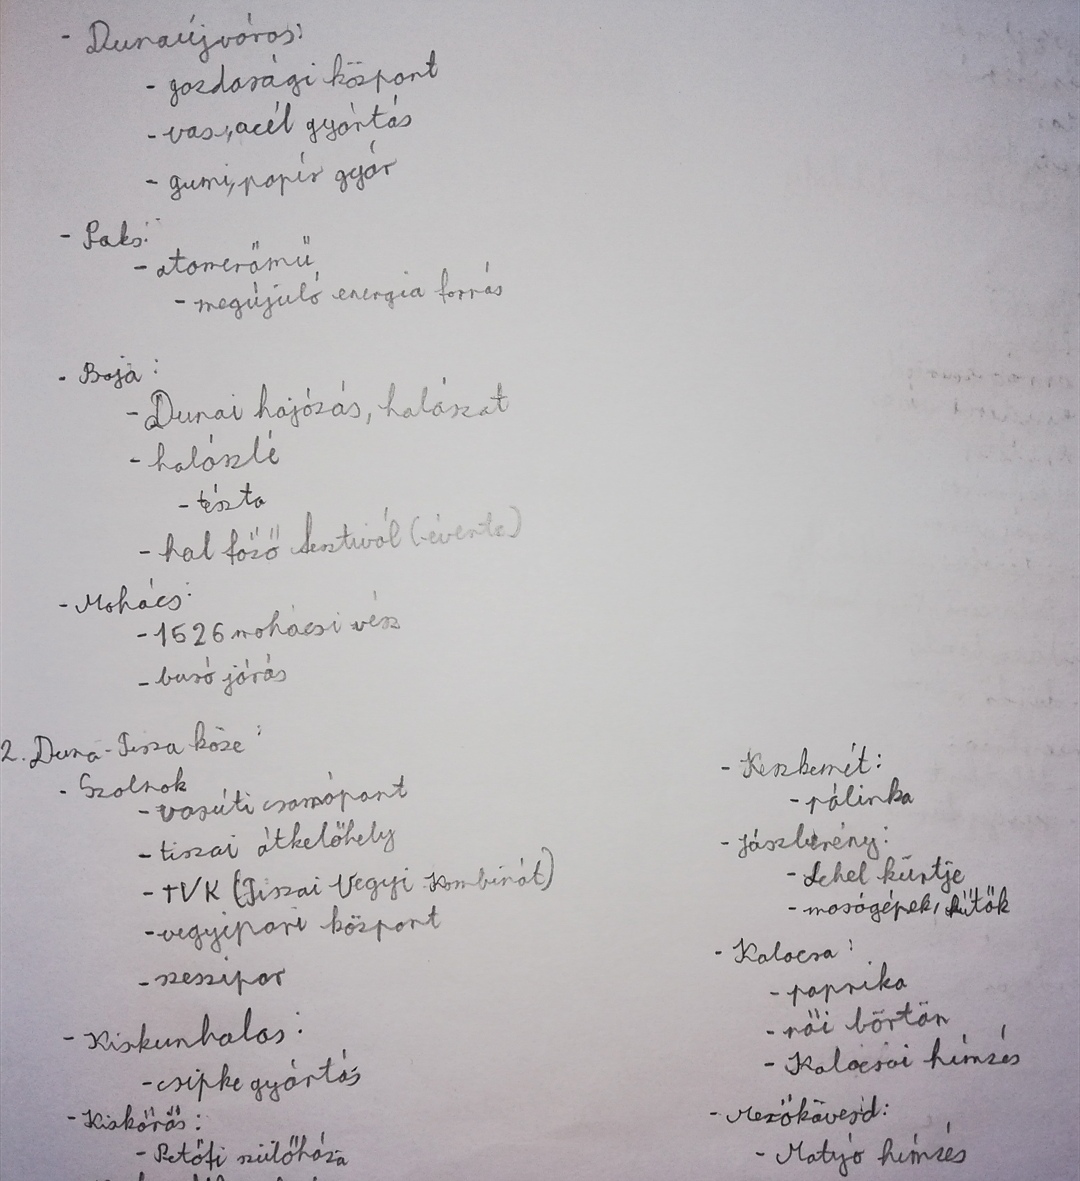 - Dunaújváros:
- gazdasági központ
- vas, acél gyártás
- gumi, papír gyár
- Paks:
- atomerőmű
- megújuló energia forrás
- Baja:
- Dunai hajózás, halászat
- halászlé
- tészta
- hal főző fesztivál (évente)
- Mohács:
- 1526 mohácsi vész
- busó járás
2. Duna-Tisza köze:
- Szolnok
- vasúti csomópont
- tiszai átkelőhely
- TVK (Tiszai Vegyi Kombinát)
- vegyipari központ
- szeszipar
- Kiskunhalas:
- csipke gyártás
- Kiskőrös:
- Petőfi szülőháza
- Keszkemét:
- pálinka
- Jászberény:
- Lehel kürtje
- mosógépek, hűtők
- Kalocsa:
- paprika
- női börtön
- Kalocsai hímzés
- Mezőkövesd:
- Matyó hímzés